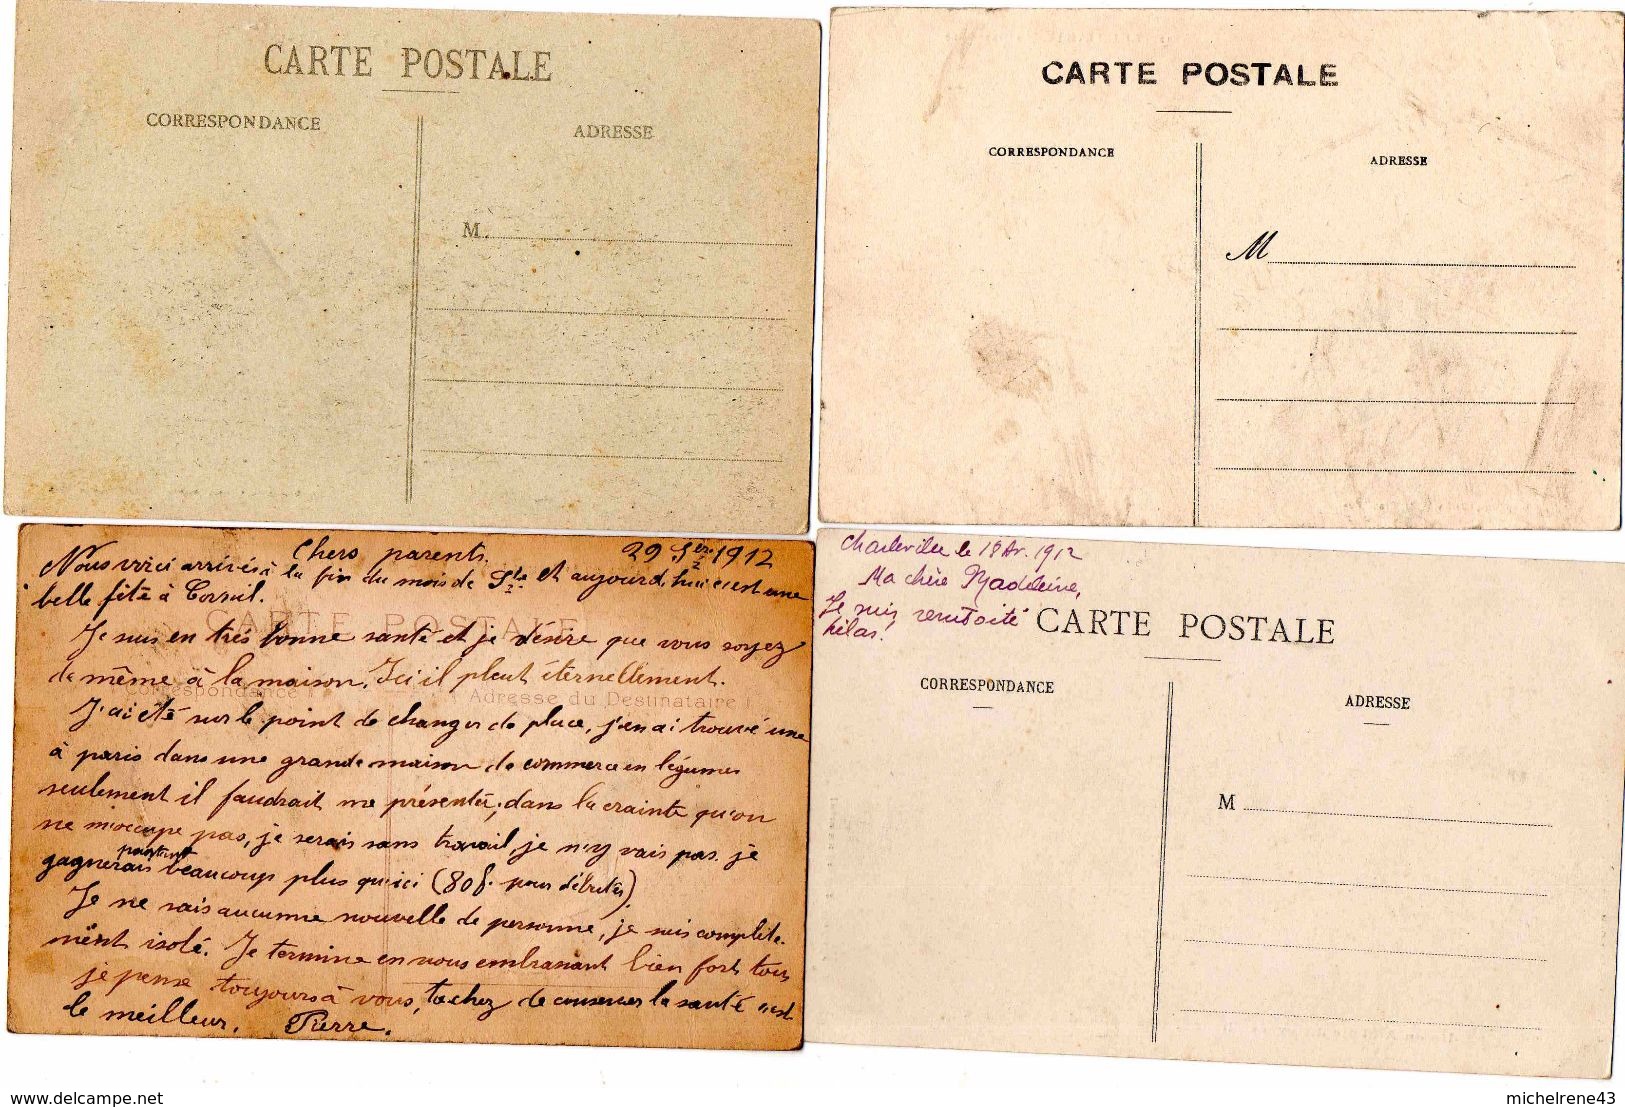 CARTE POSTALE
CORRESPONDANCE
ADRESSE
M.
CARTE POSTALE
CORRESPONDANCE
ADRESSE
M
Chers parents. 29 1912
Nous voici arrivés à la fin du mois de et aujourd'hui c'est une
belle fête à Corbeil.
CARTE POSTALE
Je suis en très bonne santé et je désire que vous soyez
de même à la maison. Ici il pleut éternellement.
Correspondance
Adresse du Destinataire
J'ai été sur le point de changer de place, j'en ai trouvé une
à paris dans une grande maison de commerce en légumes
seulement il faudrait me présenter, dans la crainte qu'on
ne m'occupe pas, je serais sans travail, je n'y vais pas. je
gagnerais pourtant beaucoup plus qu'ici (80f. pour débuter).
Je ne sais aucunne nouvelle de personne, je suis complète-
ment isolé. Je termine en vous embrassant bien fort tous
je pense toujours à vous, tachez de conserver la santé c'est
le meilleur. Pierre.
Charleville le 18 Av. 1912
Ma chère Madeleine,
Je suis
hélas!
CARTE POSTALE
CORRESPONDANCE
ADRESSE
M
delcampe.net
michelrene43